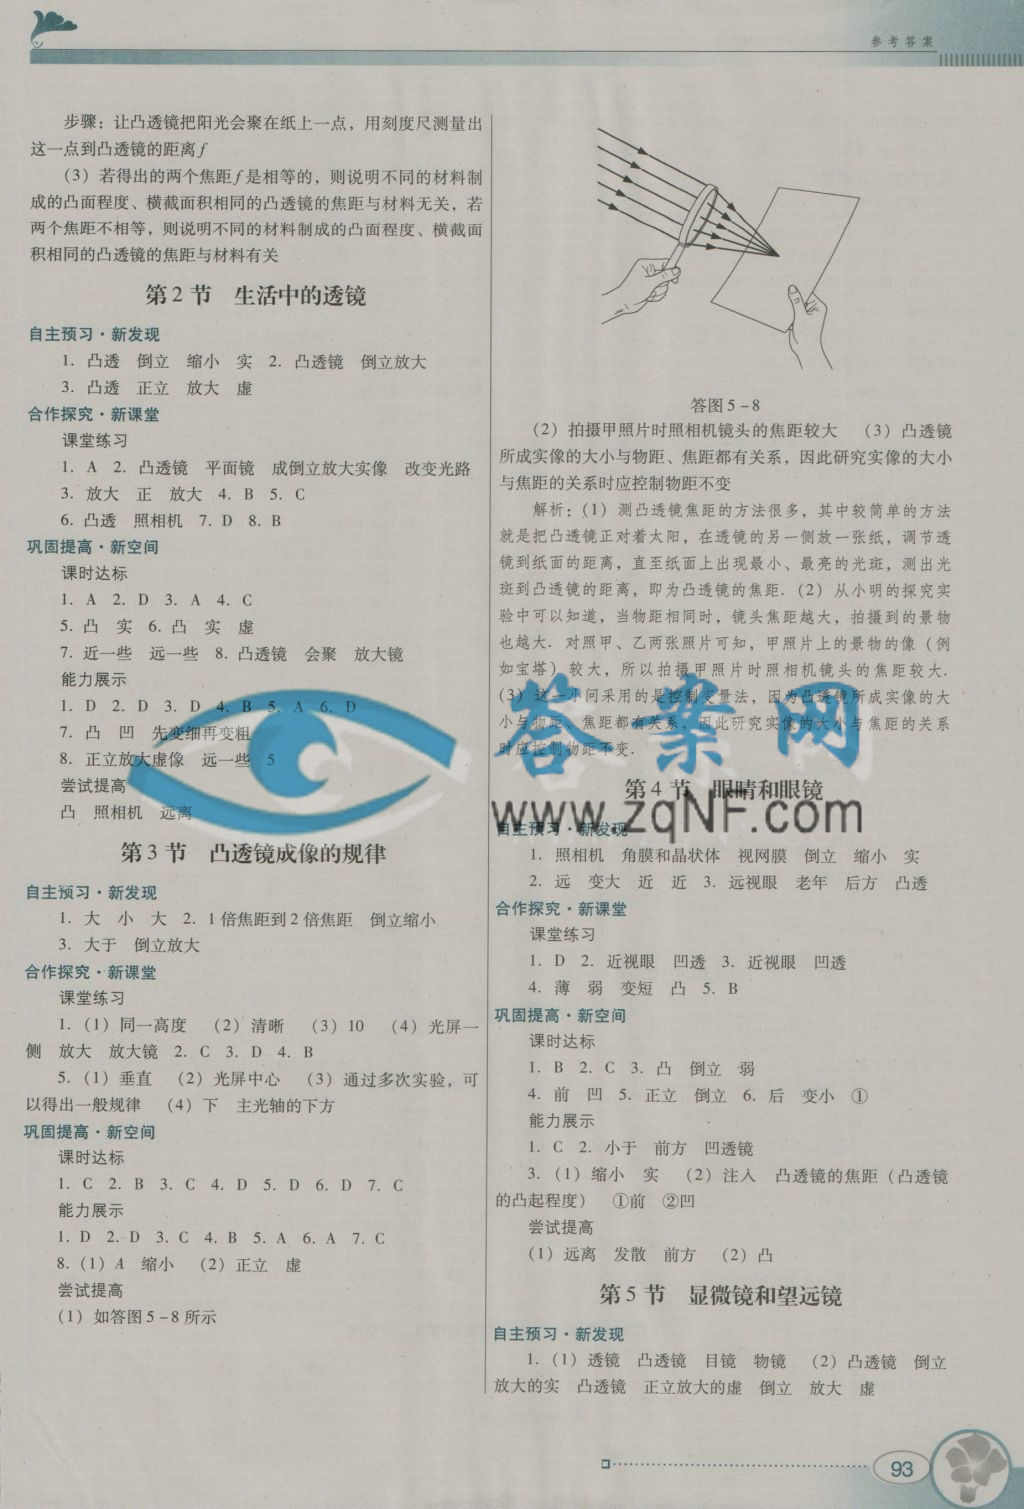 参考答案
步骤：让凸透镜把阳光会聚在纸上一点，用刻度尺测量出
这一点到凸透镜的距离f
（3）若得出的两个焦距f是相等的，则说明不同的材料制
成的凸面程度、横截面积相同的凸透镜的焦距与材料无关，若
两个焦距不相等，则说明不同的材料制成的凸面程度、横截面
积相同的凸透镜的焦距与材料有关
第2节 生活中的透镜
自主预习·新发现
1. 凸透 倒立 缩小 实 2. 凸透镜 倒立放大
3. 凸透 正立 放大 虚
合作探究·新课堂
课堂练习
1. A 2. 凸透镜 平面镜 成倒立放大实像 改变光路
3. 放大 正 放大 4. B 5. C
6. 凸透 照相机 7. D 8. B
巩固提高·新空间
课时达标
1. A 2. D 3. A 4. C
5. 凸 实 6. 凸 实 虚
7. 近一些 远一些 8. 凸透镜 会聚 放大镜
能力展示
1. D 2. D 3. D 4. B 5. A 6. D
7. 凸 凹 先变细再变粗
8. 正立放大虚像 远一些 5
尝试提高
凸 照相机 远离
第3节 凸透镜成像的规律
自主预习·新发现
1. 大 小 大 2. 1倍焦距到2倍焦距 倒立缩小
3. 大于 倒立放大
合作探究·新课堂
课堂练习
1.（1）同一高度 （2）清晰 （3）10 （4）光屏一
侧 放大 放大镜 2. C 3. D 4. B
5.（1）垂直 （2）光屏中心 （3）通过多次实验，可
以得出一般规律 （4）下 主光轴的下方
巩固提高·新空间
课时达标
1. C 2. B 3. C 4. D 5. D 6. D 7. C
能力展示
1. D 2. D 3. C 4. B 5. A 6. A 7. C
8.（1）A 缩小 （2）正立 虚
尝试提高
（1）如答图5－8所示
答图5－8
（2）拍摄甲照片时照相机镜头的焦距较大 （3）凸透镜
所成实像的大小与物距、焦距都有关系，因此研究实像的大小
与焦距的关系时应控制物距不变
解析：（1）测凸透镜焦距的方法很多，其中较简单的方法
就是把凸透镜正对着太阳，在透镜的另一侧放一张纸，调节透
镜到纸面的距离，直至纸面上出现最小、最亮的光斑，测出光
斑到凸透镜的距离，即为凸透镜的焦距.（2）从小明的探究实
验中可以知道，当物距相同时，镜头焦距越大，拍摄到的景物
也越大. 对照甲、乙两张照片可知，甲照片上的景物的像（例
如宝塔）较大，所以拍摄甲照片时照相机镜头的焦距较大.
（3）这一小问采用的是控制变量法，因为凸透镜所成实像的大
小与物距、焦距都有关系，因此研究实像的大小与焦距的关系
时应控制物距不变.
答案网
www.zqNF.com
第4节 眼睛和眼镜
自主预习·新发现
1. 照相机 角膜和晶状体 视网膜 倒立 缩小 实
2. 远 变大 近 近 3. 远视眼 老年 后方 凸透
合作探究·新课堂
课堂练习
1. D 2. 近视眼 凹透 3. 近视眼 凹透
4. 薄 弱 变短 凸 5. B
巩固提高·新空间
课时达标
1. B 2. C 3. 凸 倒立 弱
4. 前 凹 5. 正立 倒立 6. 后 变小 ①
能力展示
1. C 2. 小于 前方 凹透镜
3.（1）缩小 实 （2）注入 凸透镜的焦距（凸透镜
的凸起程度） ①前 ②凹
尝试提高
（1）远离 发散 前方 （2）凸
第5节 显微镜和望远镜
自主预习·新发现
1.（1）透镜 凸透镜 目镜 物镜 （2）凸透镜 倒立
放大的实 凸透镜 正立放大的虚 倒立 放大 虚
93